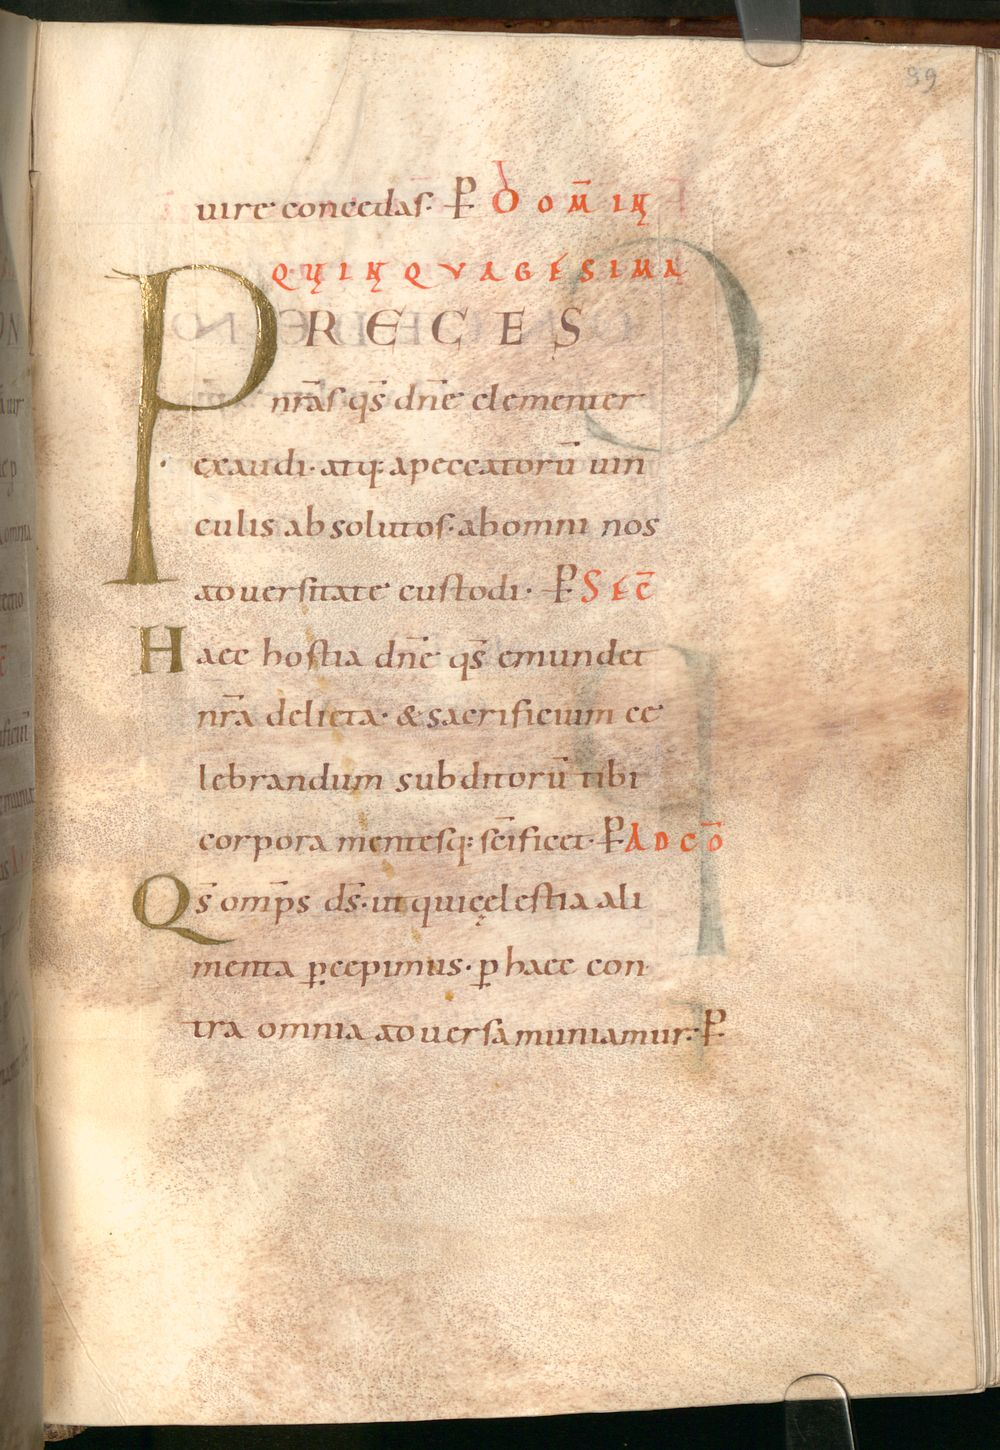 99
uire concedas· P DOM̄ IN
QUINQUAGESIMA
PRECES
nr̄as qs̄ dn̄e clementer
exaudi· atq; apeccatorū uin
culis absolutos· abomni nos
aduersitate custodi· P SEC̄
Haec hostia dn̄e qs̄ emundet
nr̄a delicta· & sacrificium ce
lebrandum subditorū tibi
corpora mentesq; sc̄ificet· P AD CŌ
Qs̄ omp̄s ds̄· ut quicęlestia ali
menta ꝑcepimus· ꝑ haec con
tra omnia aduersa muniamur· P